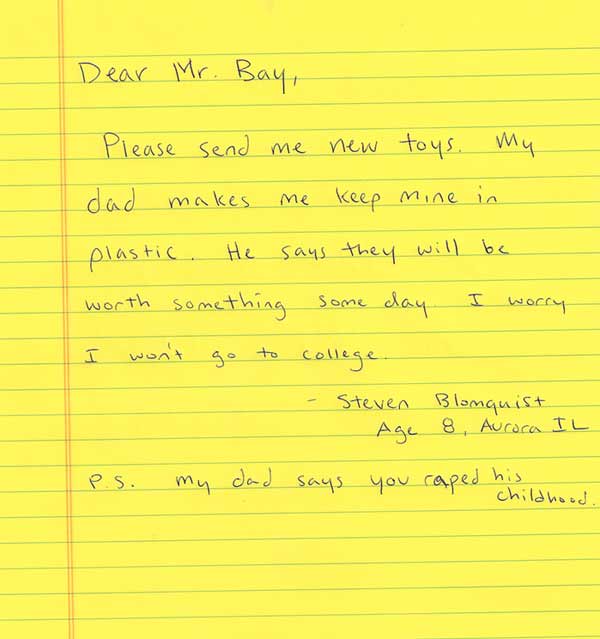 Dear Mr. Bay,
Please send me new toys. My
dad makes me keep mine in
plastic. He says they will be
worth something some day. I worry
I won't go to college.
- Steven Blomquist
Age 8, Aurora IL
P.S. my dad says you raped his
childhood.